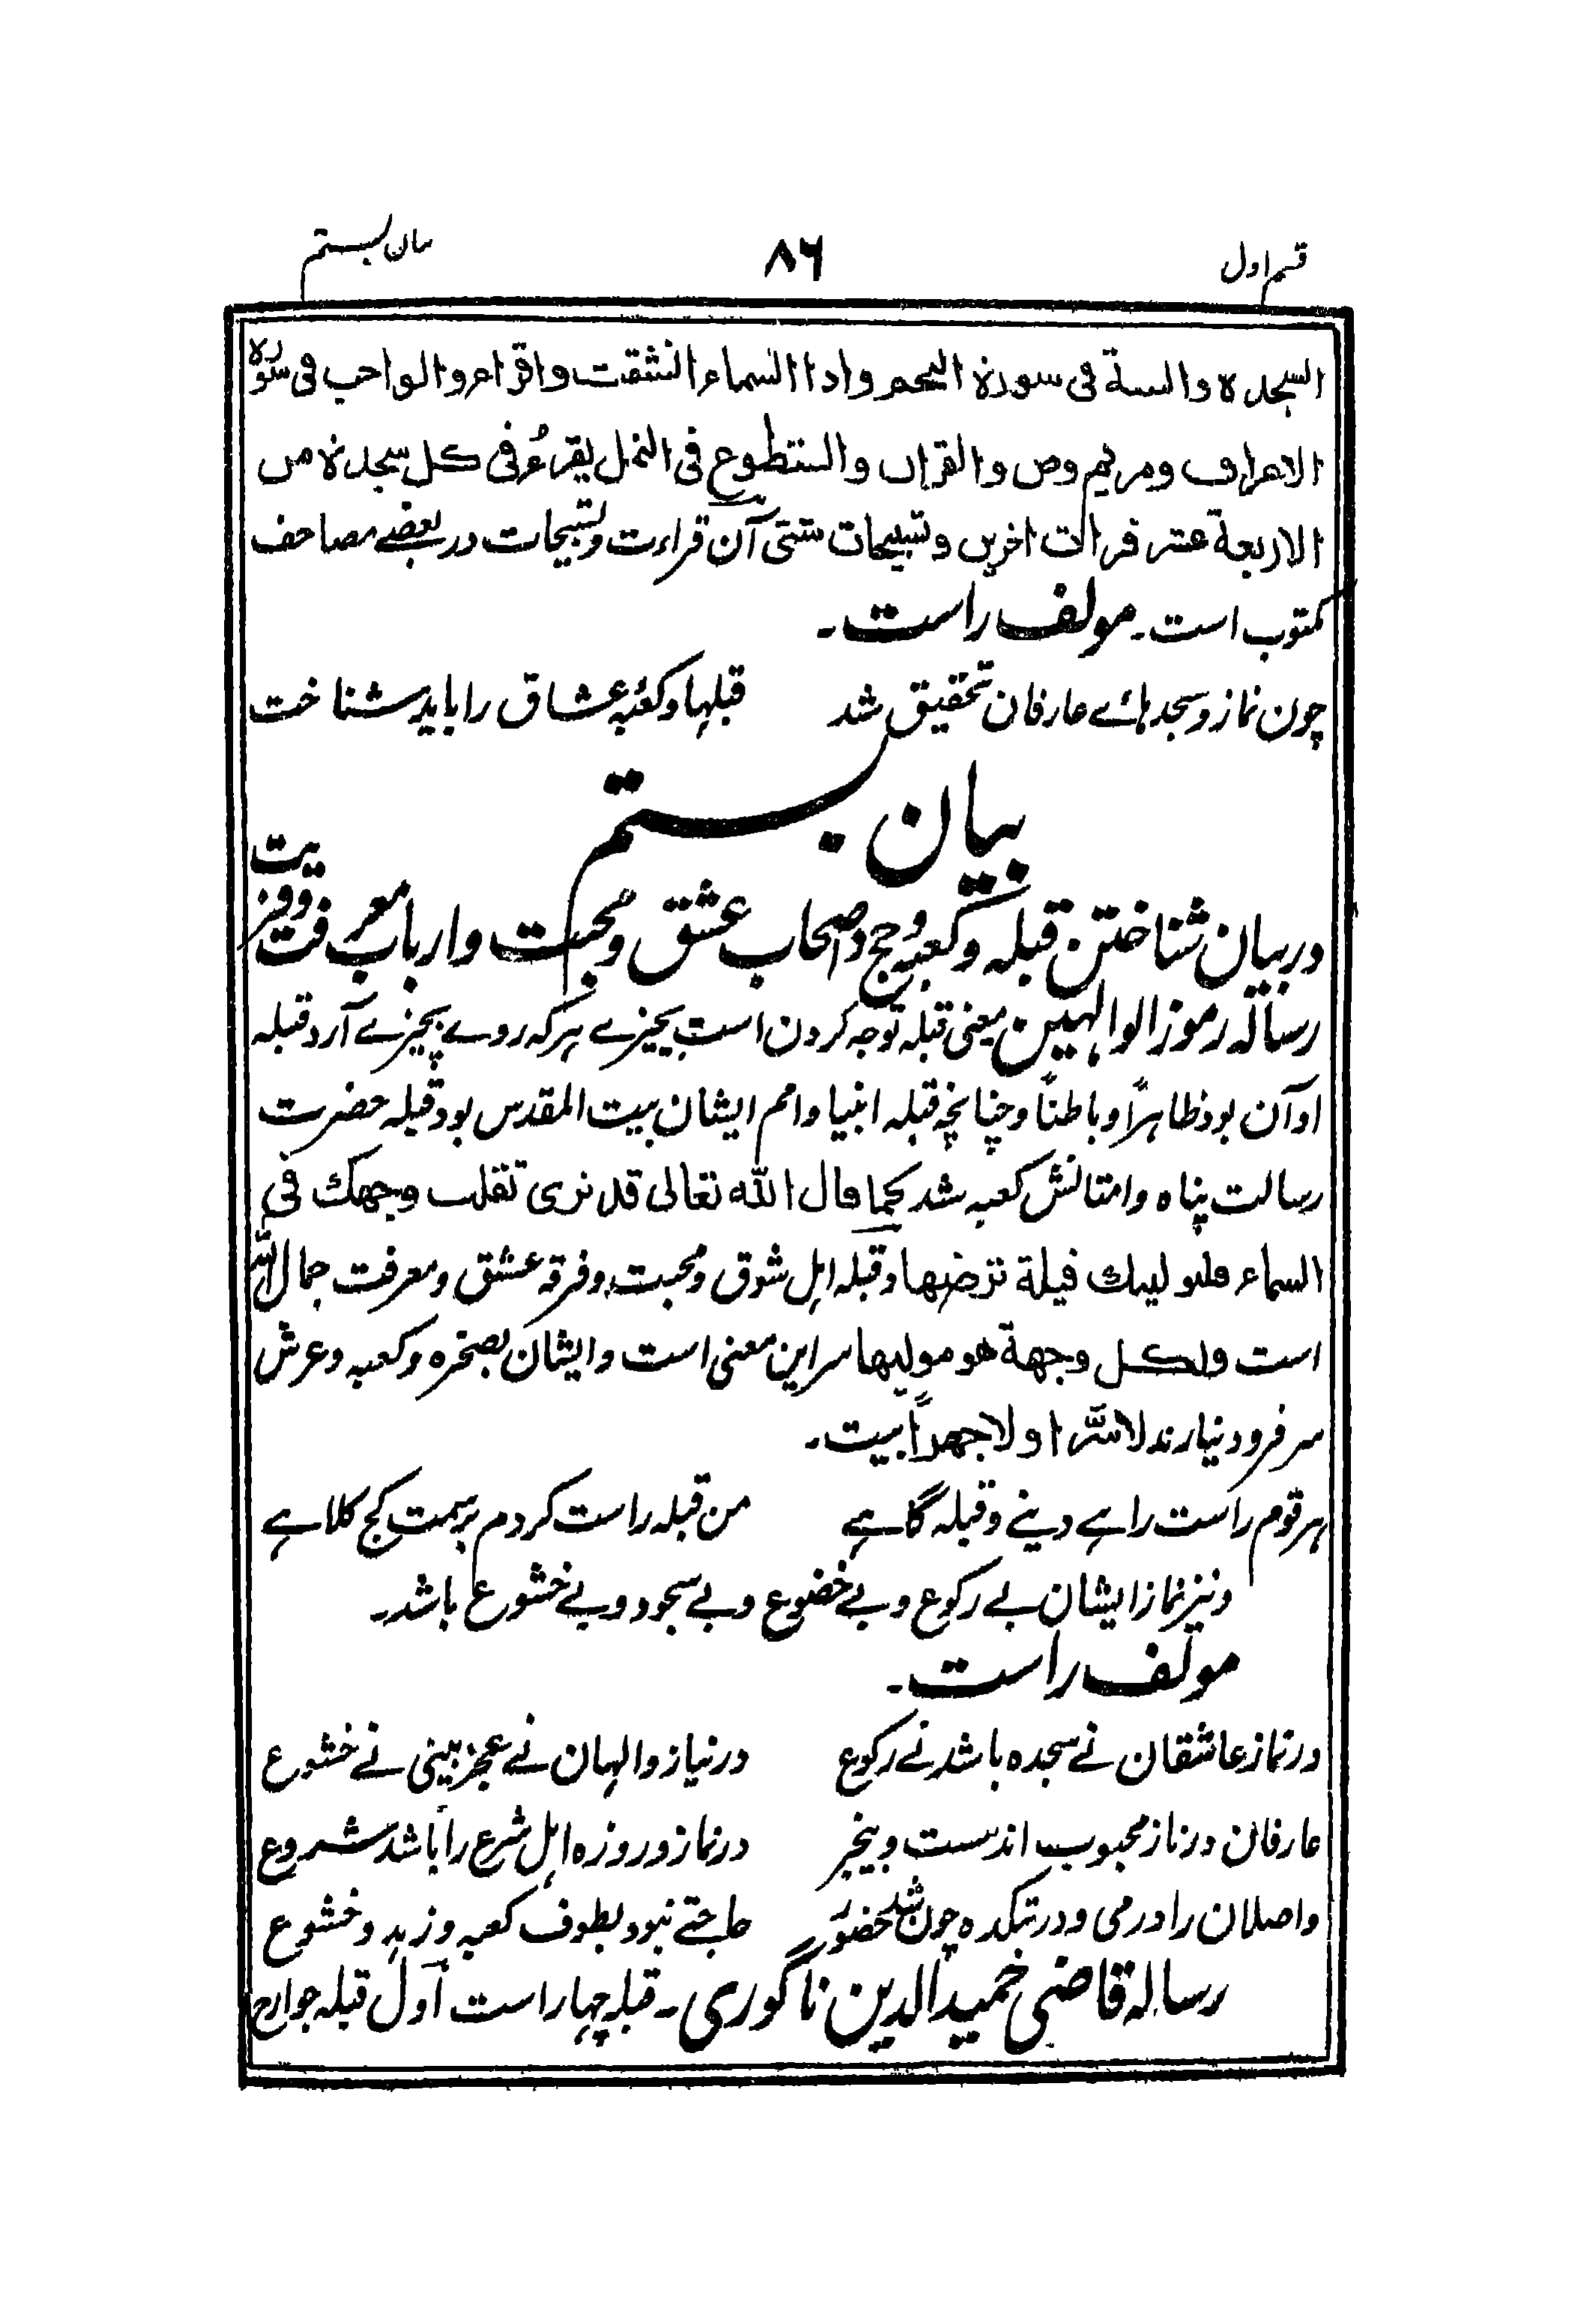 قسم اول
۸۶
بیان بستم
السجدة والسنة فی سورة النجم واذا السماء انشقت واقراء والواجب فی سورة
الاعراف ومریم وص والقران والتطوع فی النمل یقرء فی کل سجدة من
الاربعة عشر قرات اخریں وتسبیحات شتی آن قراءت وتسبیحات در بعضے مصاحف
مکتوب است۔ مولف راست۔
چون نماز و سجدہائے عارفان تحقیق شد قبلہا و کعبۂ عشاق را باید شناخت
بیان بستم
در بیان شناختن قبلہ و کعبہ و حج اصحاب عشق و محبت وارباب معرفت و قربیت
رسالہ رموز الوالہین معنی قبلہ توجہ کردن است بچیزے ہر کہ روے بچیزے آرد قبلہ
او آن بود ظاہراً و باطناً و چنانچہ قبلہ انبیا و امم ایشان بیت المقدس بود قبلہ حضرت
رسالت پناہ و امتانش کعبہ شد کما قال اللہ تعالی قد نری تقلب وجھک فی
السماء فلنولینک قبلة ترضھا و قبلہ اہل شوق و محبت و فرقہ عشق و معرفت جمال اللہ
است ولکل وجھة ھو مولیھا سر این معنی است و ایشان بصخرہ و کعبہ و عرش
سر فرود نیارند لا سرا و لا جھراً بیت۔
ہر قوم راست راہے دینے و قبلہ گاہے من قبلہ راست کردم بر سمت کج کلاہے
و نیز نماز ایشان بے رکوع و بے خضوع و بے سجود و بے خشوع باشد۔
مولف راست۔
در نماز عاشقان نے سجدہ باشد نے رکوع در نیاز والہان نے عجز بینی نے خشوع
عارفان در ناز محبوب اند مست و بیخبر در نماز و روزہ اہل شرع را باشد شروع
واصلان را در می و در بتکدہ چون شد حضور حاجتے نبود بطوف کعبہ و زہد و خشوع
رسالہ قاضی حمید الدین ناگوری۔ قبلہ چہار است اول قبلہ جوارح